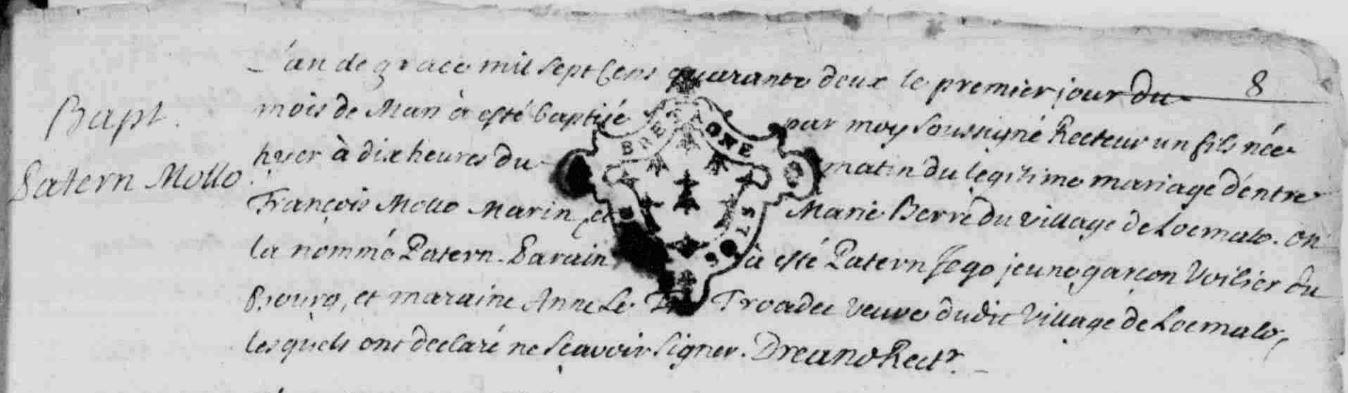 8
L'an de grace mil sept cens quarante deux le premier jour du
Bapt.
mois de Mars à esté baptisé par moy soussigné Recteur un fils née
Patern Mollo.
hyer à dix heures du matin du legitime mariage d'entre
François Mollo Marin et Marie Berre du village de Locmalo. on
la nommé Patern. Parain à esté Patern Jego jeune garçon voilier du
Bourg, et maraine Anne Le Troadec veuve dudit village de Locmalo,
lesquels ont declaré ne sçavoir signer. Dreano Rectr.
BRETAGNE